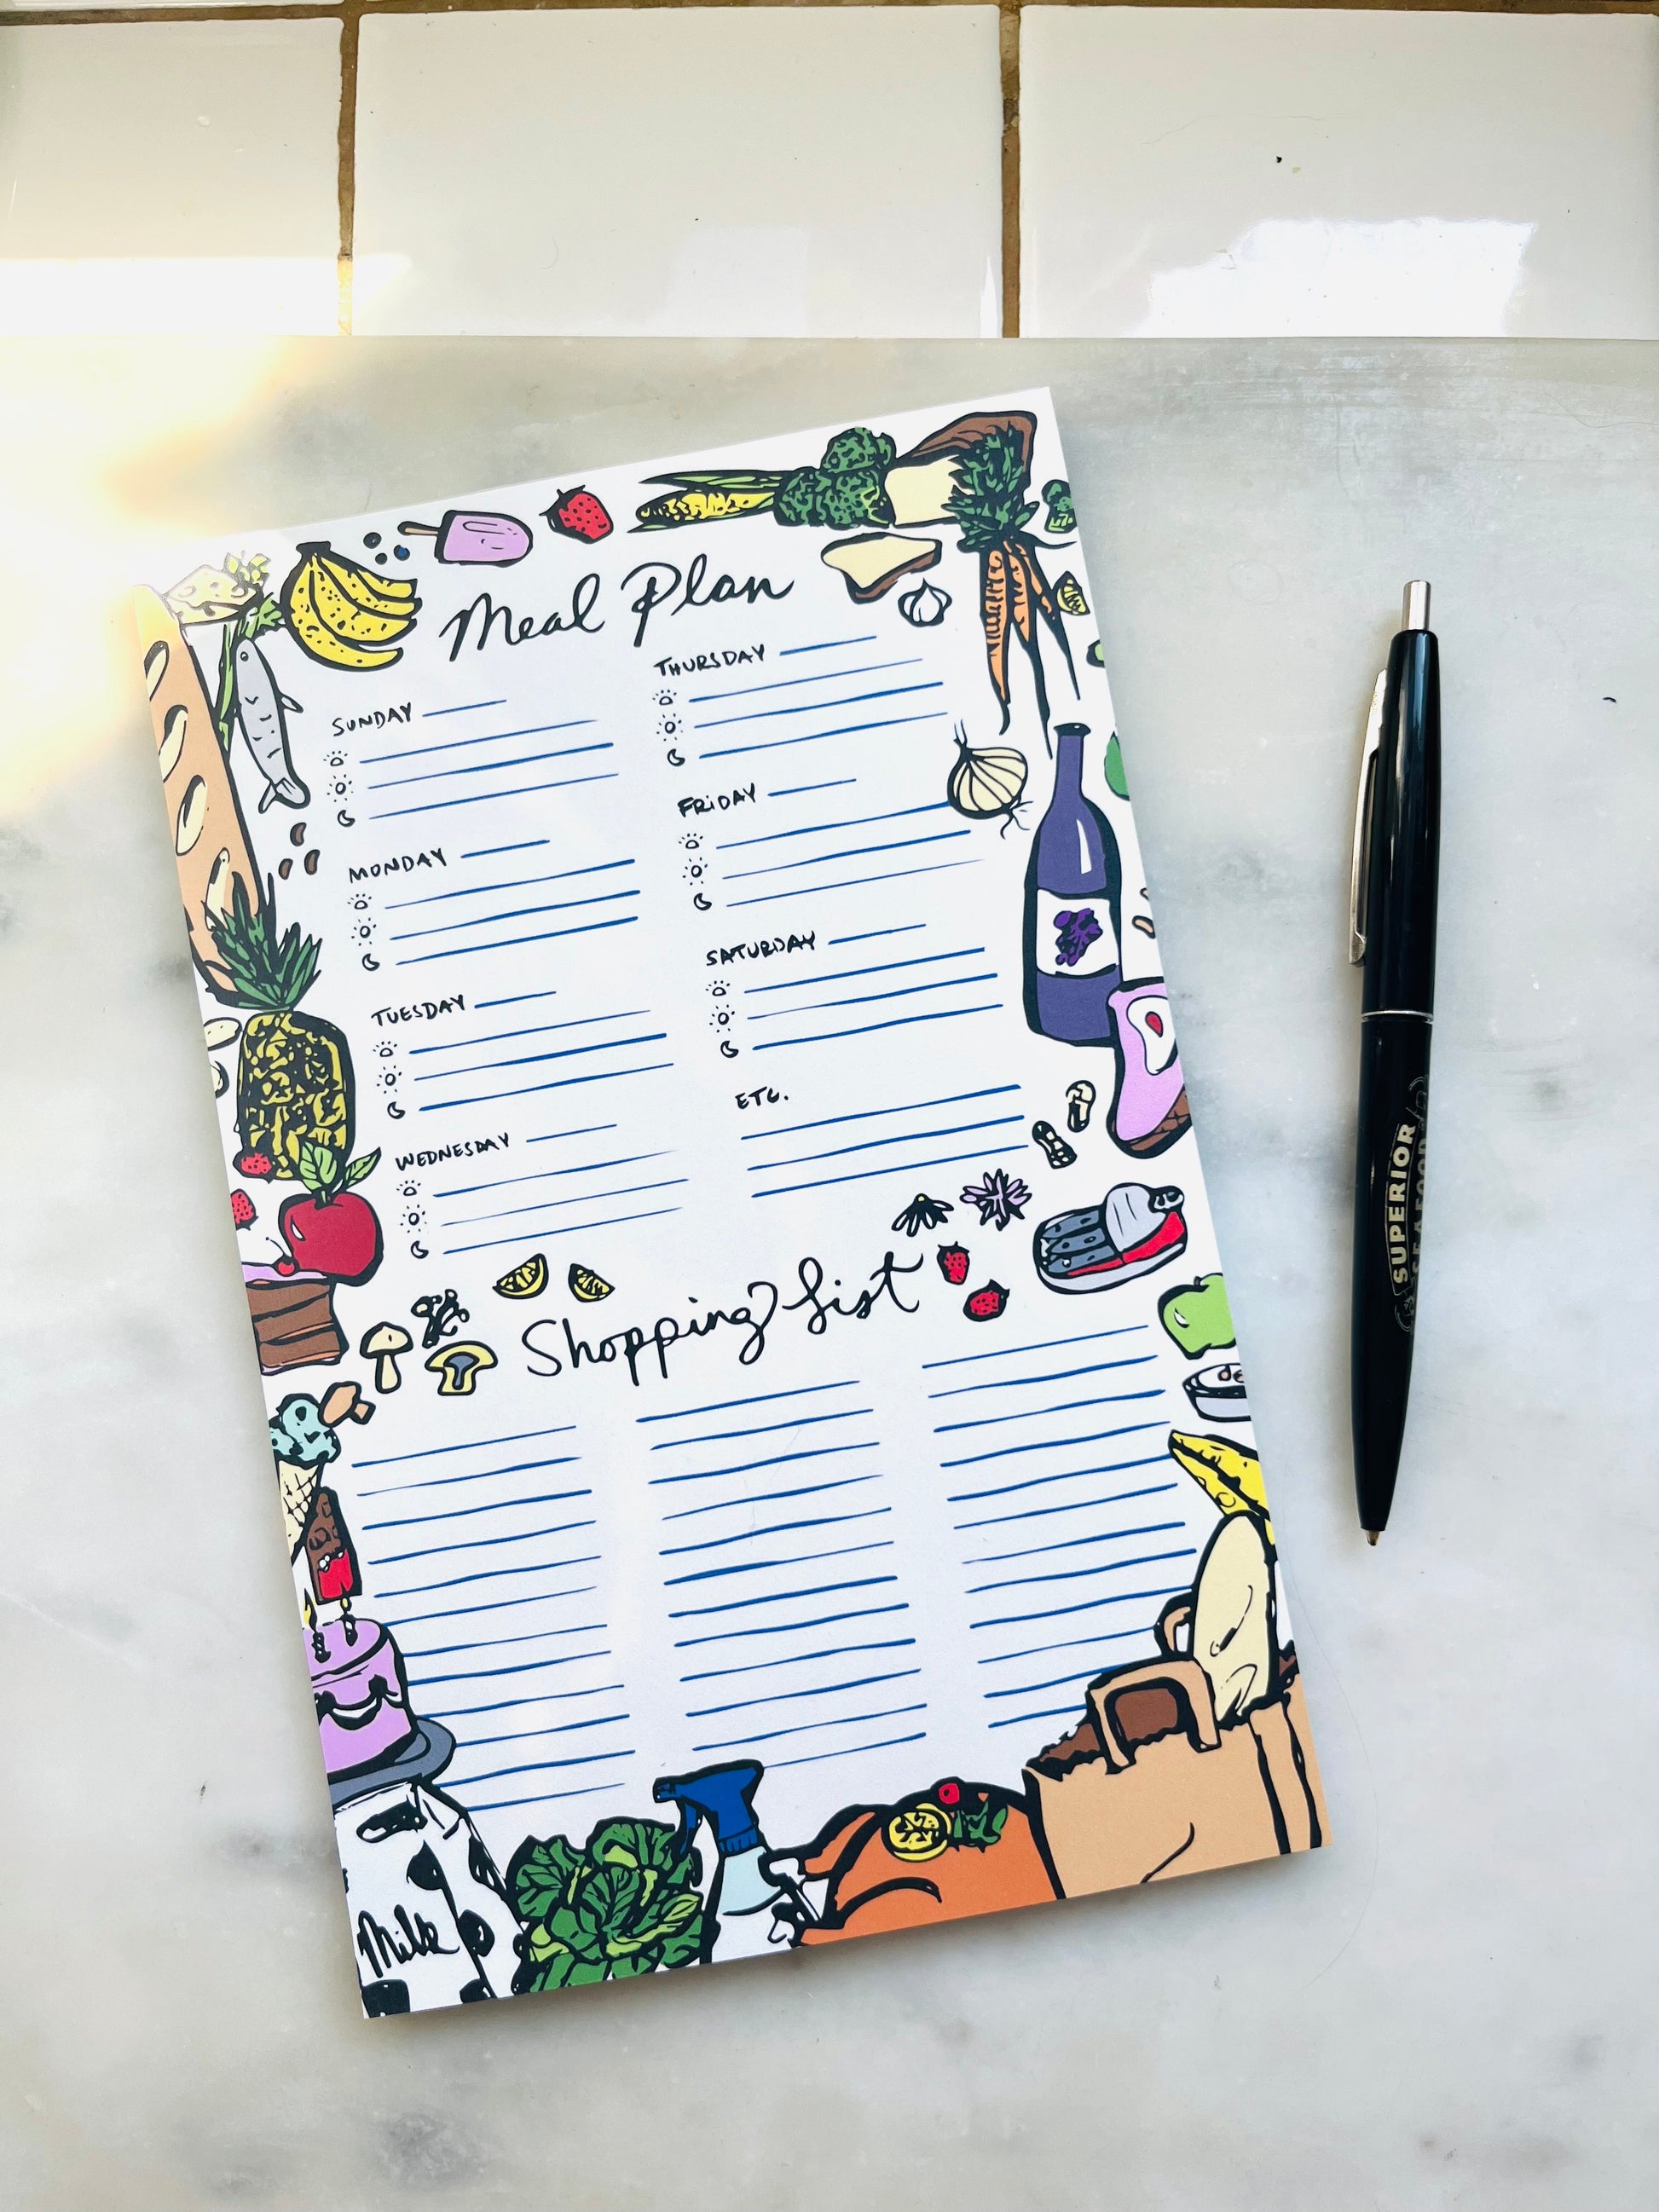 Meal Plan
SUNDAY
MONDAY
TUESDAY
WEDNESDAY
THURSDAY
FRiDAY
SATURDAY
ETC.
Shopping List
Milk
SUPERIOR
SEAFOOD